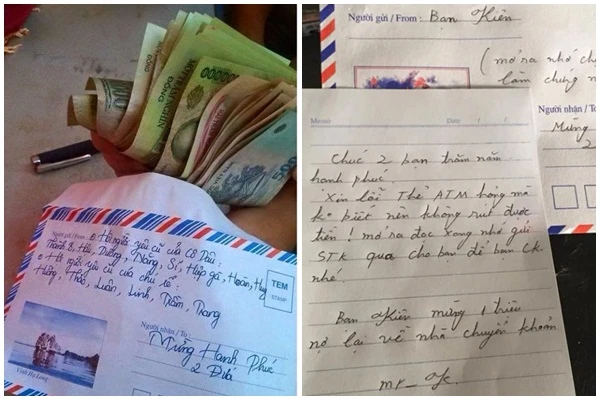 ĐỒNG
100000
ĐỒNG
5000
Người gửi / From : Hội người yêu cũ của Cô Dâu :
Hải, Dương, Năng, Sĩ, Hiệp gà, Hoàn, Huy
Hội người yêu cũ của chú rể :
Hường, Thảo, Luân, Linh, Trầm, Trang
TEM
STAMP
Vịnh Hạ Long
Người nhận / To :
Mừng Hạnh Phúc
2 Đứa
Người gửi / From : Bạn Kiên
(mở ra nhớ
làm chứng
Người nhận / To
Mừng
2
Memo
Date / /
Chúc 2 bạn trăm năm
hạnh phúc
Xin lỗi Thẻ ATM hỏng mà
ko biết nên không rút được
tiền ! mở ra đọc xong nhớ gửi
STK qua cho bạn để bạn CK
nhé.
Bạn Kiên mừng 1 triệu
nợ lại về nhà chuyển khoản